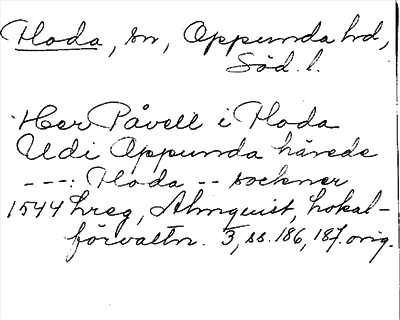 Floda, sn, Oppunda hd,
Söd. l.
Her Påvell i Floda
Udi Oppunda härede
---: Floda -- sockner
1544 hreg, Almquist, Lokal-
förvaltn. 3, ss. 186, 187. orig.